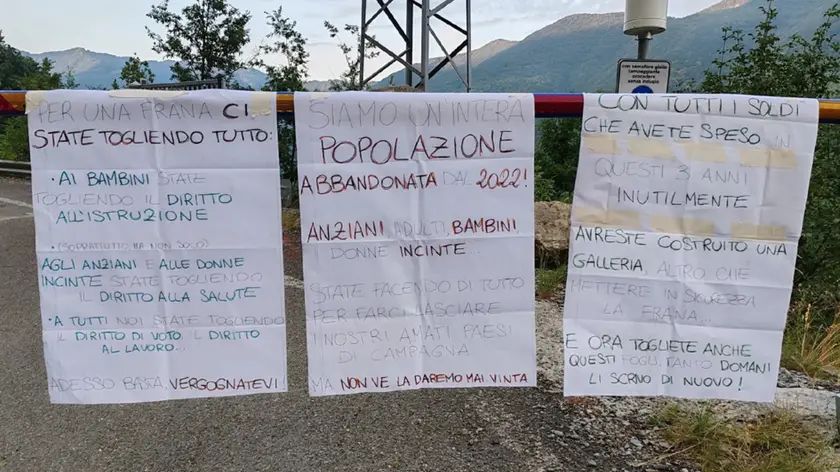 PER UNA FRANA CI
STATE TOGLIENDO TUTTO:
• AI BAMBINI STATE
TOGLIENDO IL DIRITTO
ALL'ISTRUZIONE
(SOPRATTUTTO, MA NON SOLO)
AGLI ANZIANI E ALLE DONNE
INCINTE STATE TOGLIENDO
IL DIRITTO ALLA SALUTE
• A TUTTI NOI STATE TOGLIENDO
IL DIRITTO DI VOTO, IL DIRITTO
AL LAVORO...
ADESSO BASTA, VERGOGNATEVI!
SIAMO UN'INTERA
POPOLAZIONE
ABBANDONATA DAL 2022!
ANZIANI, ADULTI, BAMBINI,
DONNE INCINTE...
STATE FACENDO DI TUTTO
PER FARCI LASCIARE
I NOSTRI AMATI PAESI
DI CAMPAGNA
MA NON VE LA DAREMO MAI VINTA
CON TUTTI I SOLDI
CHE AVETE SPESO IN
QUESTI 3 ANNI
INUTILMENTE
AVRESTE COSTRUITO UNA
GALLERIA, ALTRO CHE
METTERE IN SICUREZZA
LA FRANA...
E ORA TOGLIETE ANCHE
QUESTI FOGLI, TANTO DOMANI
LI SCRIVO DI NUOVO!
con semaforo giallo
lampeggiante
procedere
senza indugio